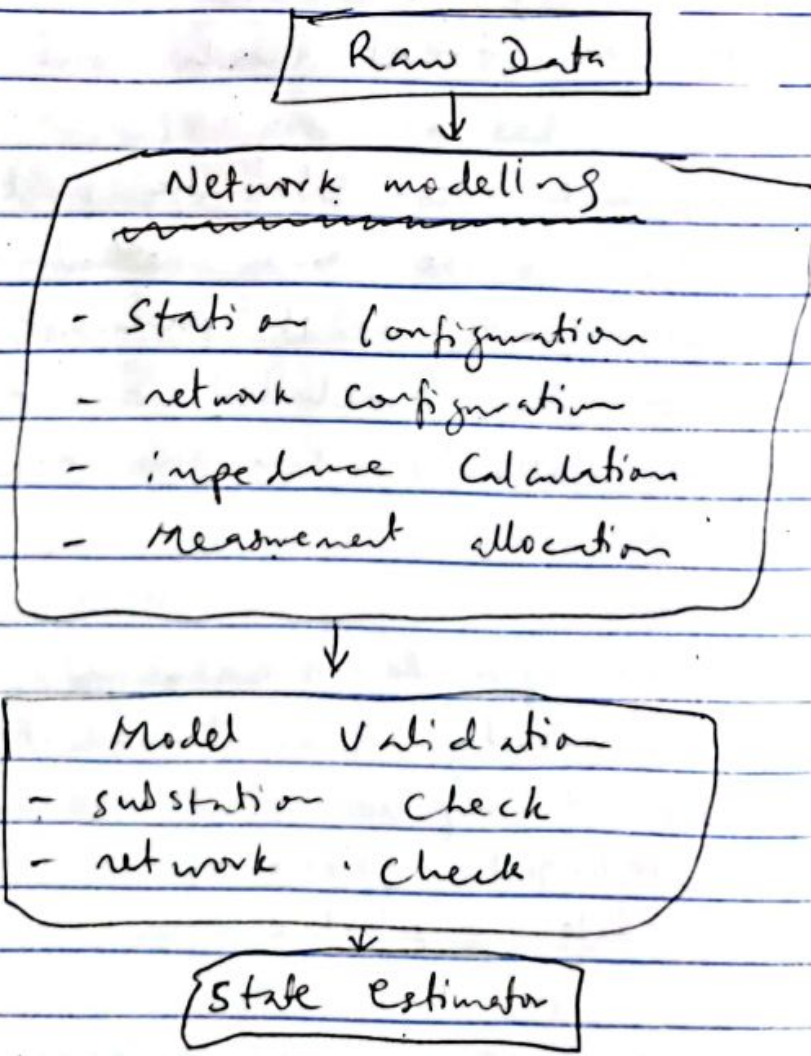 Raw Data
Network modelling
- Station Configuration
- network configuration
- impedance Calculation
- Measurement allocation
Model Validation
- substation check
- network check
State estimator